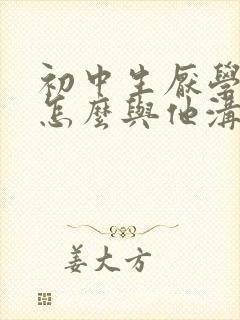 初中生厭學
怎麼與他溝
姜大方